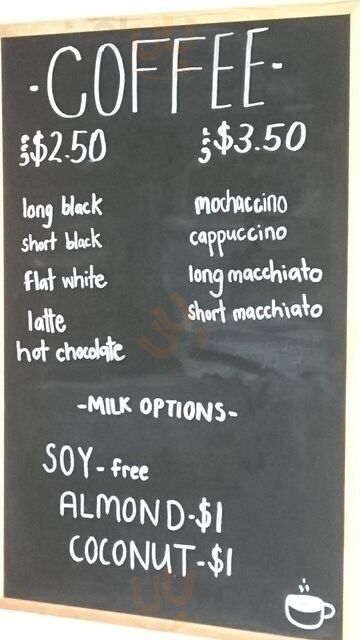 -COFFEE-
reg $2.50
lrg $3.50
long black
short black
flat white
latte
hot chocolate
mochaccino
cappuccino
long macchiato
short macchiato
-MILK OPTIONS-
SOY-free
ALMOND-$1
COCONUT-$1